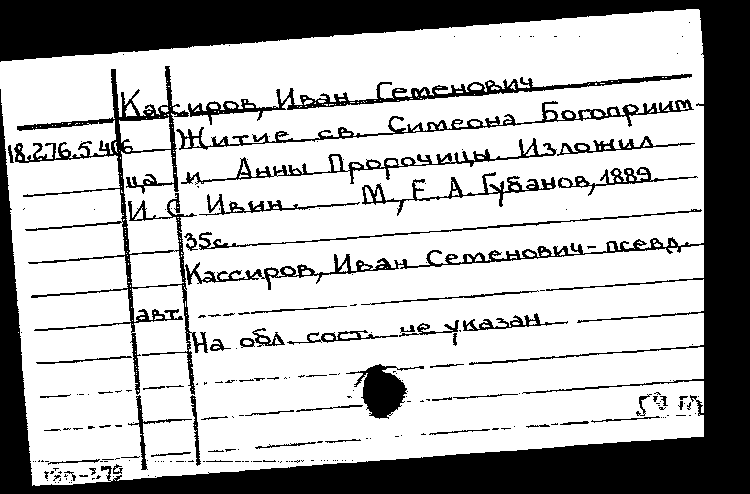 Кассиров, Иван Семенович
18.276.5.406 Житие св. Симеона Богоприим-
ца и Анны Пророчицы. Изложил
И. С. Ивин. М., Е. А. Губанов, 1889.
35с.
Кассиров, Иван Семенович - псевд.
авт.
На обл. сост. не указан.